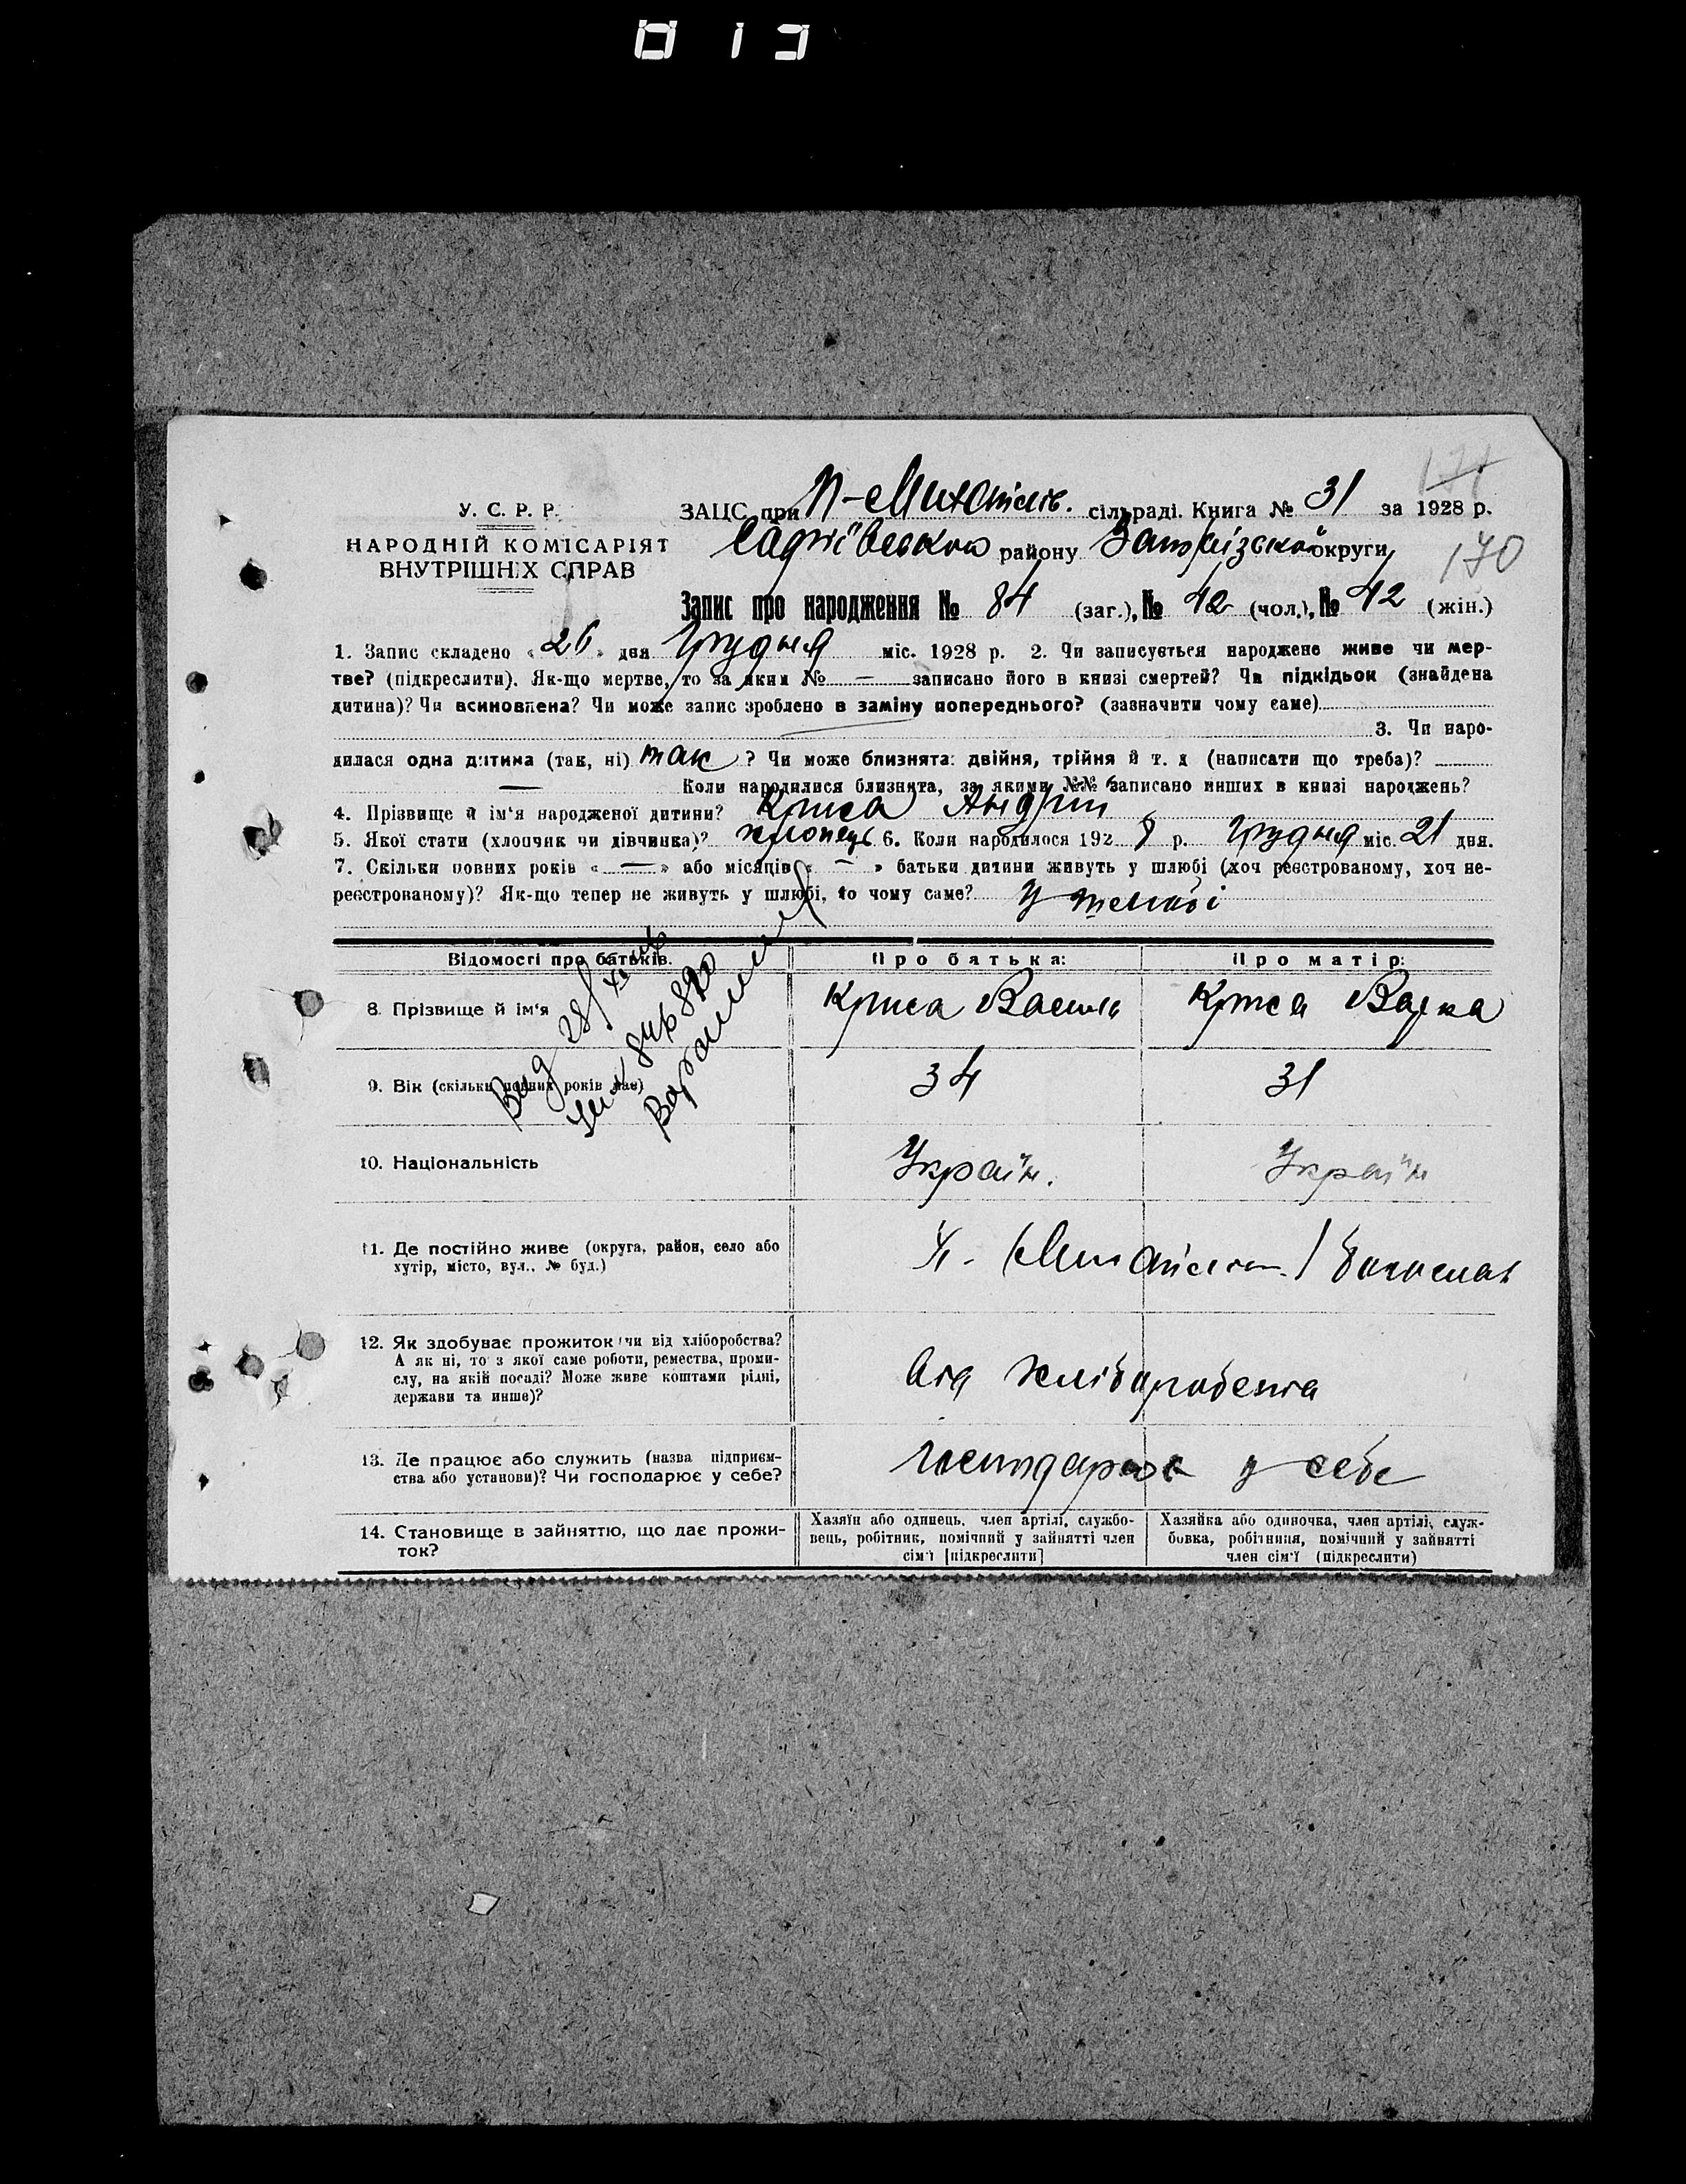 У. С. Р. Р.
НАРОДНІЙ КОМІСАРІЯТ
ВНУТРІШНІХ СПРАВ
ЗАЦС при сільраді. Книга № 31 за 1928 р.
району округи
170
Запис про народження № 84 (заг.), № 42 (чол.), № 42 (жін.)
1. Запис складено «26» дня Грудня міс. 1928 р. 2. Чи записується народжене живе чи мер-
тве? (підкреслити). Як-що мертве, то за яким № — записано його в книзі смертей? Чи підкідьок (знайдена
дитина)? Чи всиновлена? Чи може запис зроблено в заміну попереднього? (зазначити чому саме)
3. Чи наро-
дилася одна дитина (так, ні) так ? Чи може близнята: двійня, трійня й т. д (написати що треба)?
— Коли народилися близнята, за якими №№ записано инших в книзі народжень?
4. Прізвище й ім'я народженої дитини? Криса Андрій
5. Якої стати (хлопчик чи дівчинка)? хлопець 6. Коли народилося 1928 р. Грудня міс. 21 дня.
7. Скільки повних років «—» або місяців «—» батьки дитини живуть у шлюбі (хоч реєстрованому, хоч не-
реєстрованому)? Як-що тепер не живуть у шлюбі, то чому саме? У шлюбі
Відомості про батьків. Про батька: Про матір:
8. Прізвище й ім'я Криса Василь Криса Варка
9. Вік (скільки повних років має) 34 31
10. Національність Україн. Україн
11. Де постійно живе (округа, район, село або
хутір, місто, вул., № буд.)
12. Як здобуває прожиток (чи від хліборобства?
А як ні, то з якої саме роботи, ремества, проми-
слу, на якій посаді? Може живе коштами рідні,
держави та инше)?
від хліборобства
13. Де працює або служить (назва підприєм-
ства або установи)? Чи господарює у себе?
господарює у себе
14. Становище в зайняттю, що дає прожи-
ток?
Хазяїн або одинець, член артілі, службо-
вець, робітник, помічний у зайнятті член
сім'ї [підкреслити]
Хазяйка або одиночка, член артілі, служ-
бовка, робітниця, помічний у зайнятті
член сім'ї (підкреслити)